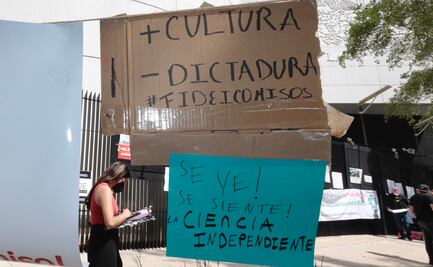 + CULTURA
- DICTADURA
#FIDEICOMISOS
SE VE!
SE SIENTE!
LA CIENCIA
INDEPENDIENTE